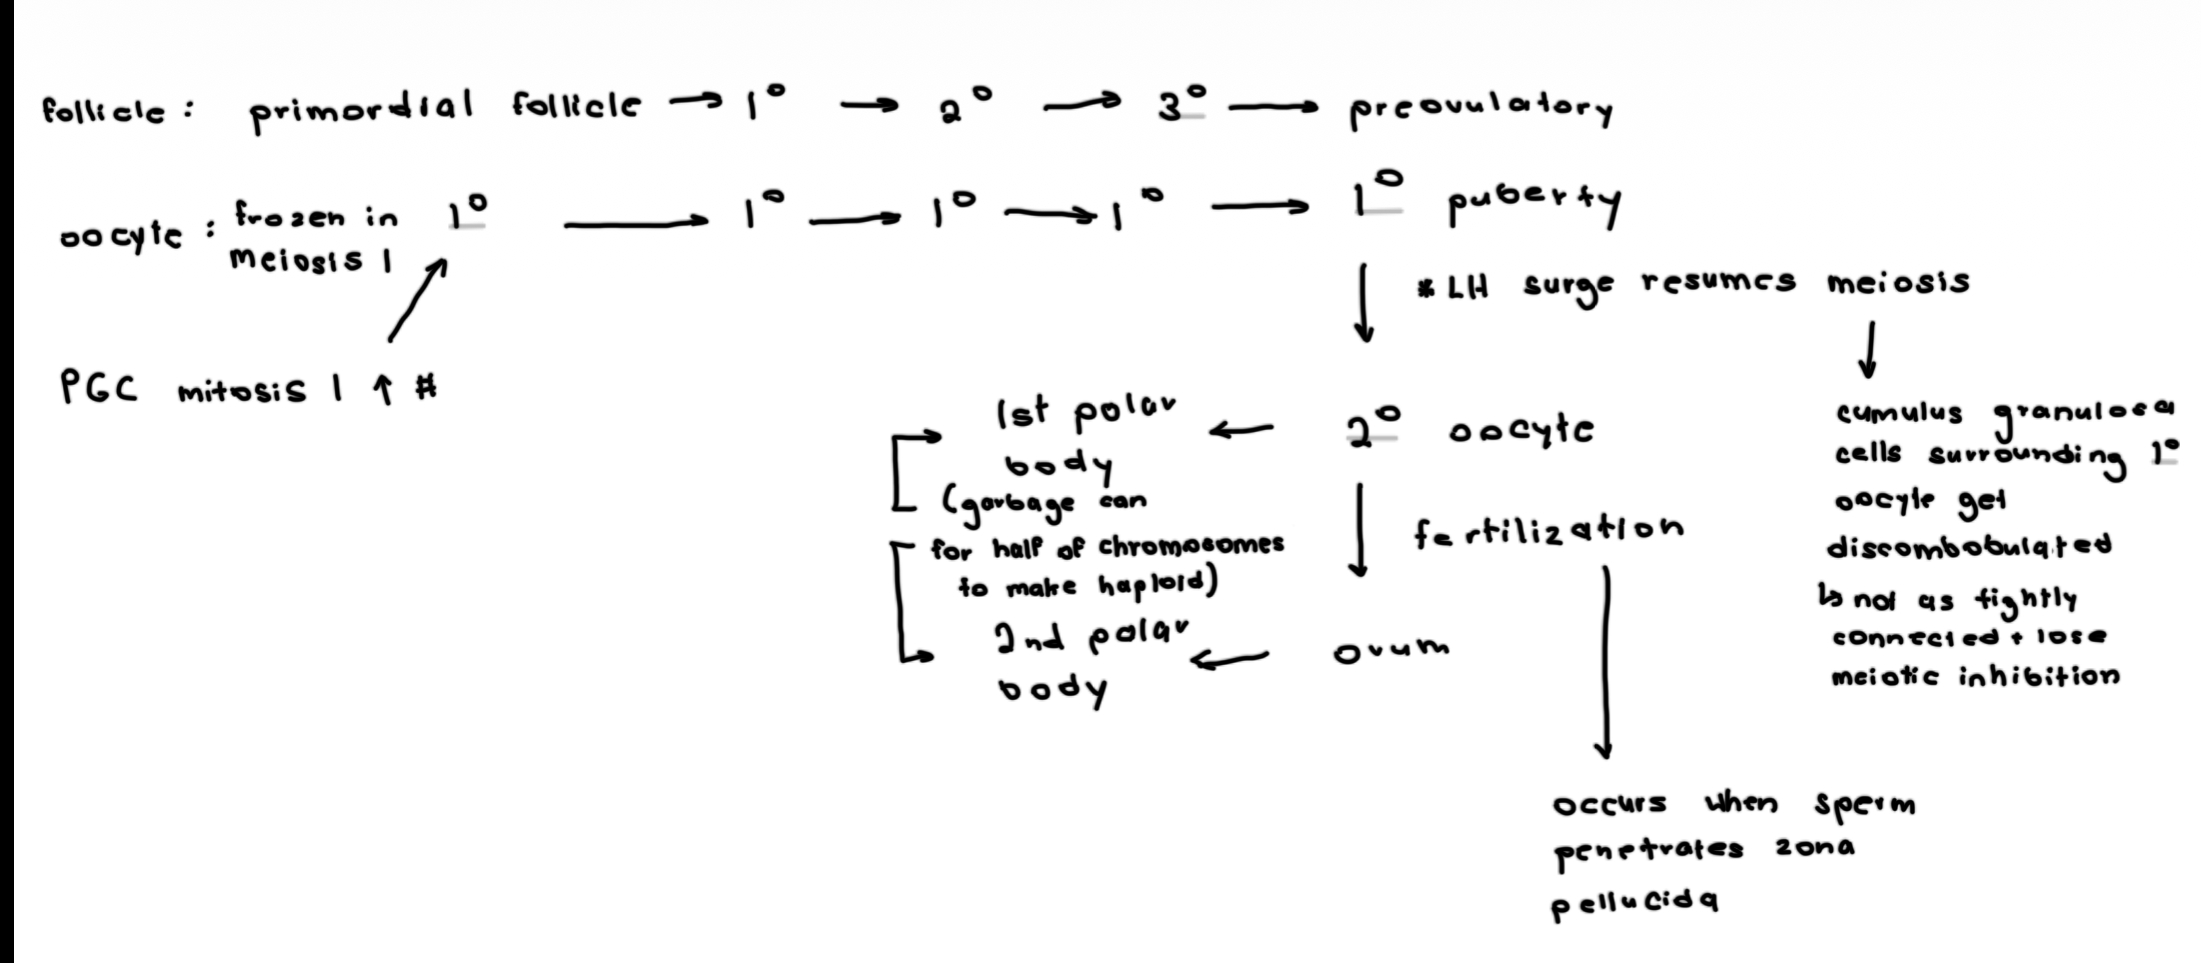 follicle: primordial follicle → 1° → 2° → 3° → preovulatory
oocyte: frozen in meiosis 1 1° → 1° → 1° → 1° → 1° puberty
* LH surge resumes meiosis
PGC mitosis 1 ↑ #
1st polar body ← 2° oocyte
(garbage can
for half of chromosomes
to make haploid)
fertilization
2nd polar body ← ovum
cumulus granulosa
cells surrounding 1°
oocyte get
discombobulated
↳ not as tightly
connected + lose
meiotic inhibition
occurs when sperm
penetrates zona
pellucida